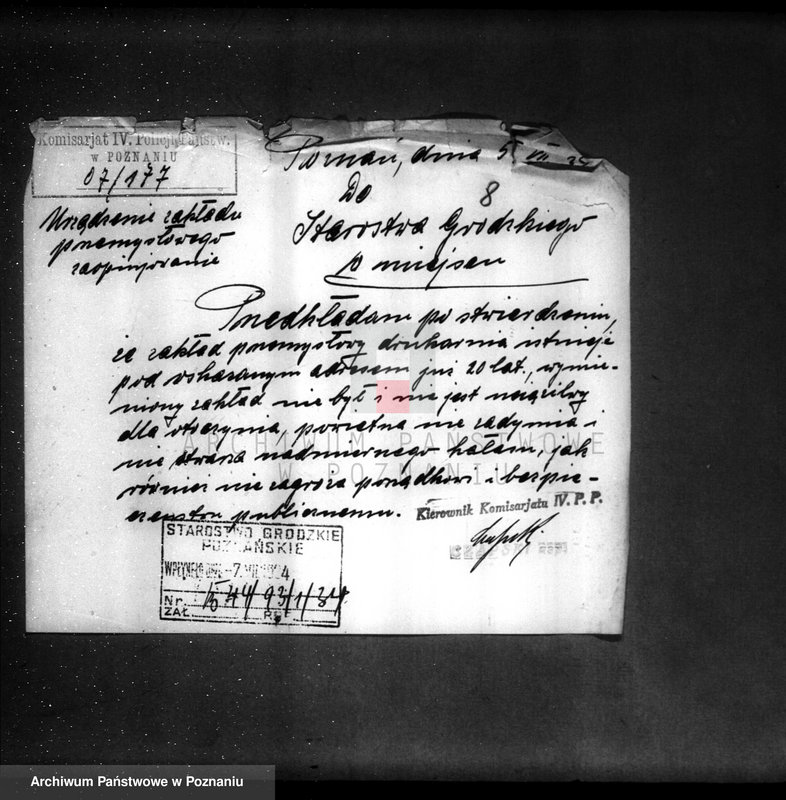 Komisarjat IV. Policji Państw.
w POZNANIU
07/177
Poznań, dnia 5 VII 34
8
Urządzenie zakładu
przemysłowego
zaopinjowanie
Do
Starostwa Grodzkiego
w miejscu
Przedkładam po stwierdzeniu,
że zakład przemysłowy drukarnia istnieje
pod wskazanym adresem już 20 lat, wymie-
niony zakład nie był i nie jest uciążliwy
dla otoczenia, powietrza nie zadymia i
nie stwarza nadmiernego hałasu, jak
również nie zagraża porządkowi i bezpie-
czeństwu publicznemu.
Kierownik Komisarjatu IV. P. P.
STAROSTWO GRODZKIE
POZNAŃSKIE
WPŁYNĘŁO DNIA -7. VII. 1934
Nr.
ZAŁ. REF.
ARCHIWUM PAŃSTWOWE
W POZNANIU
Archiwum Państwowe w Poznaniu